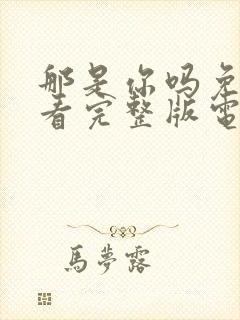 那是你吗免
看完整版電
馬夢露